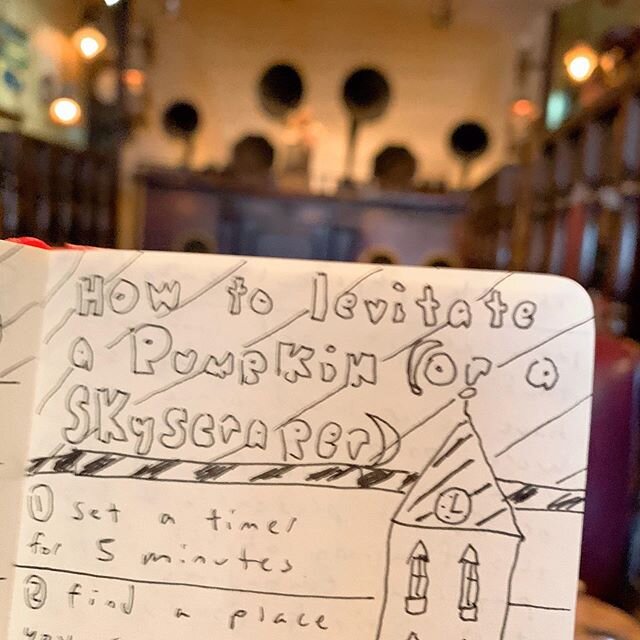 How to levitate
a Pumpkin (or a
Skyscraper)
① set a timer
for 5 minutes
② find a place